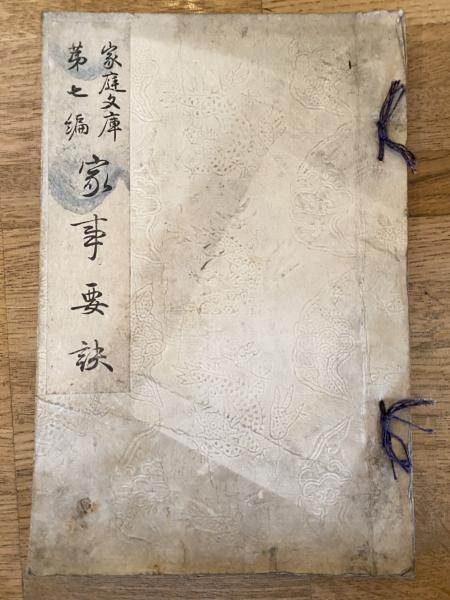 家庭文庫
第七編
家事要訣